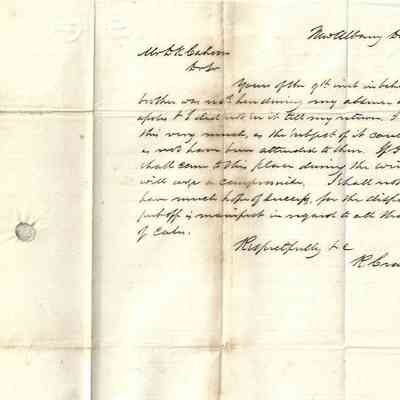 New Albany D
Mr D. K.
Dr Sir
Yours of the 9th inst in beha
brother was rec'd here during my absence
& I did not see it till my return. I
this very much, as the subject of it coul
as not have been attended to then. If
shall come to this place during the win
will urge a compromise. I shall not
have much hope of success, for the dispo
put off is manifest in regard to all tha
of
Respectfully &c
R Cra